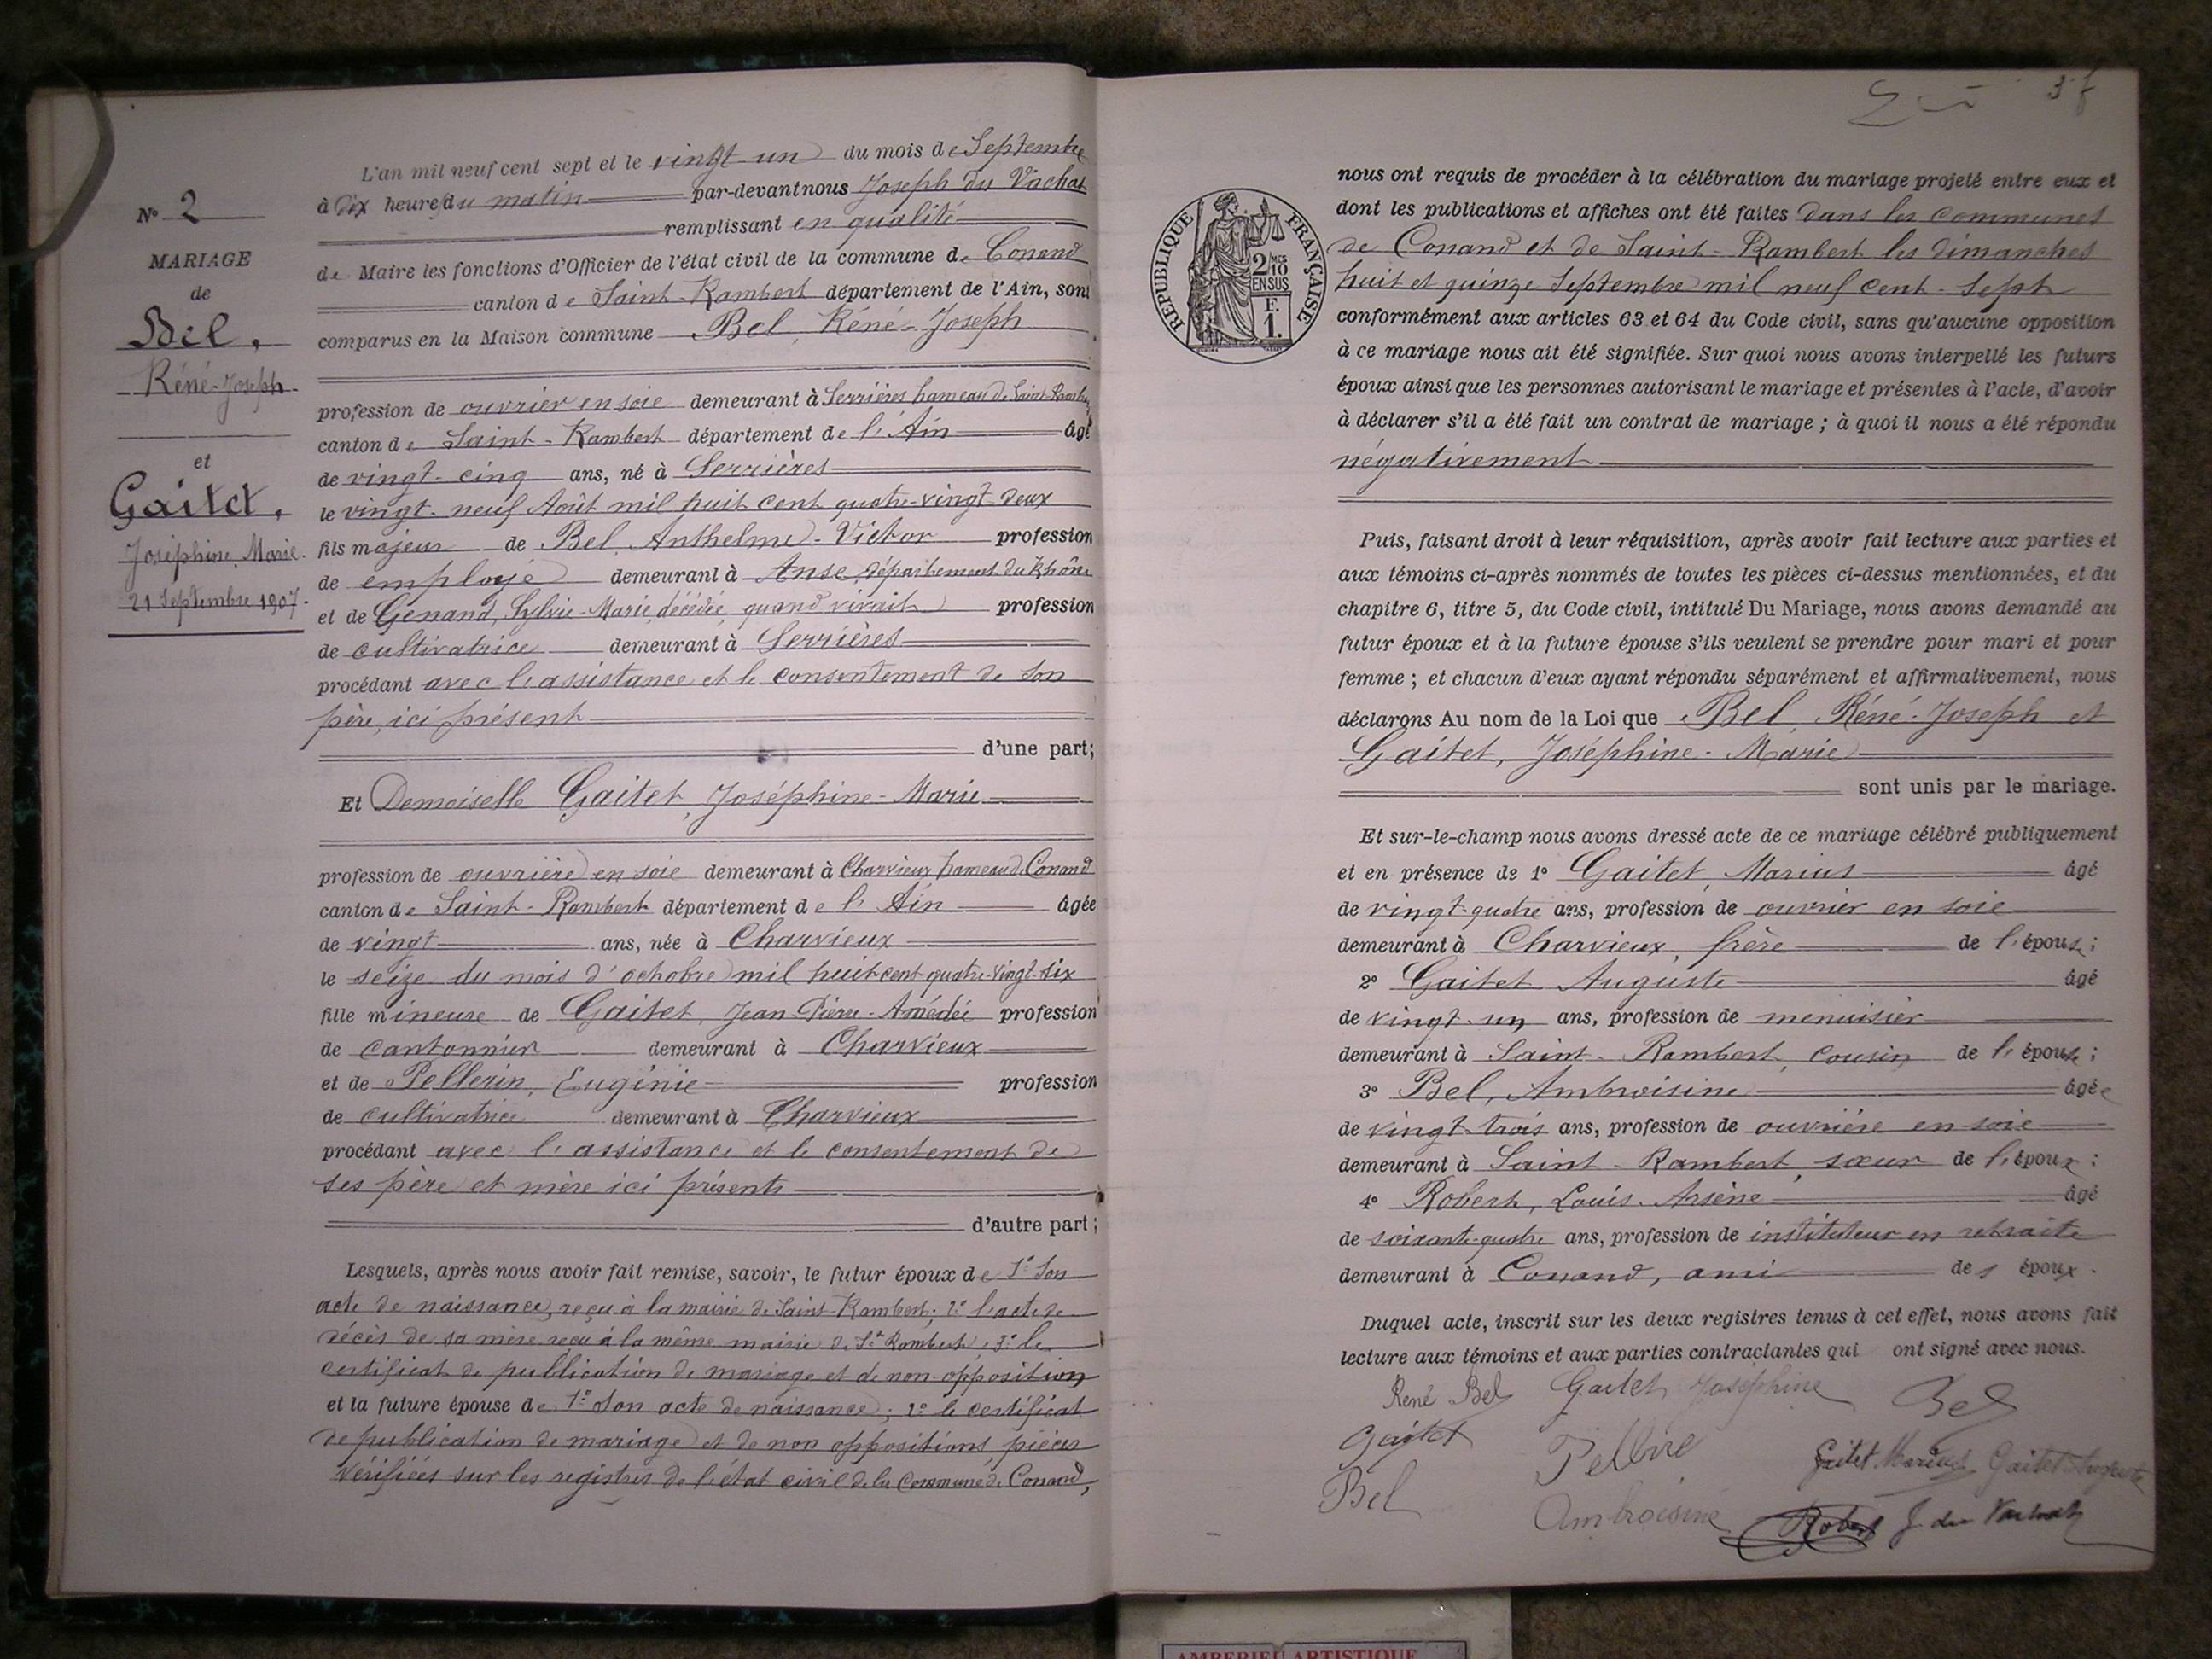 N° 2
MARIAGE
de
Bel,
Réné-Joseph
et
Gaitet,
Joséphine Marie.
21 Septembre 1907.
L'an mil neuf cent sept et le vingt un du mois de Septembre
à Dix heures du matin par-devant nous Joseph du Vachat
remplissant en qualité
de Maire les fonctions d'Officier de l'état civil de la commune de Conand
canton de Saint-Rambert département de l'Ain, sont
comparus en la Maison commune Bel, Réné-Joseph
profession de ouvrier en soie demeurant à Serrières hameau de Saint-Rambert
canton de Saint-Rambert département de l'Ain âgé
de vingt-cinq ans, né à Serrières
le vingt-neuf Août mil huit cent quatre-vingt-deux
fils majeur de Bel Anthelme-Victor profession
de employé demeurant à Anse, département du Rhône
et de Genand, Sylvie-Marie, décédée, quand vivait profession
de cultivatrice demeurant à Serrières
procédant avec l'assistance et le consentement de son
père, ici présent
d'une part;
Et Demoiselle Gaitet, Joséphine-Marie
profession de ouvrière en soie demeurant à Charvieux hameau de Conand
canton de Saint-Rambert département de l'Ain âgée
de vingt ans, née à Charvieux
le seize du mois d'octobre mil huit cent quatre-vingt-six
fille mineure de Gaitet, Jean-Pierre-Amédée profession
de cantonnier demeurant à Charvieux
et de Pellerin, Eugénie profession
de cultivatrice demeurant à Charvieux
procédant avec l'assistance et le consentement de
ses père et mère ici présents
d'autre part;
Lesquels, après nous avoir fait remise, savoir, le futur époux de 1° Son
acte de naissance, reçu à la mairie de Saint-Rambert; 2° l'acte de
décès de sa mère reçu à la même mairie de St Rambert; 3° le
certificat de publication de mariage et de non opposition
et la future épouse de 1° Son acte de naissance; 2° le certificat
de publication de mariage et de non oppositions, pièces
vérifiées sur les registres de l'état civil de la Commune de Conand,
37
RÉPUBLIQUE FRANÇAISE
2 MES
10
EN SUS
F.
1.
nous ont requis de procéder à la célébration du mariage projeté entre eux et
dont les publications et affiches ont été faites dans les communes
de Conand et de Saint-Rambert les dimanches
huit et quinze Septembre mil neuf cent-Sept
conformément aux articles 63 et 64 du Code civil, sans qu'aucune opposition
à ce mariage nous ait été signifiée. Sur quoi nous avons interpellé les futurs
époux ainsi que les personnes autorisant le mariage et présentes à l'acte, d'avoir
à déclarer s'il a été fait un contrat de mariage; à quoi il nous a été répondu
négativement
Puis, faisant droit à leur réquisition, après avoir fait lecture aux parties et
aux témoins ci-après nommés de toutes les pièces ci-dessus mentionnées, et du
chapitre 6, titre 5, du Code civil, intitulé Du Mariage, nous avons demandé au
futur époux et à la future épouse s'ils veulent se prendre pour mari et pour
femme; et chacun d'eux ayant répondu séparément et affirmativement, nous
déclarons Au nom de la Loi que Bel, Réné-Joseph et
Gaitet, Joséphine-Marie
sont unis par le mariage.
Et sur-le-champ nous avons dressé acte de ce mariage célébré publiquement
et en présence de 1° Gaitet, Marius âgé
de vingt-quatre ans, profession de ouvrier en soie
demeurant à Charvieux, frère de l'épouse;
2° Gaitet Auguste âgé
de vingt-un ans, profession de menuisier
demeurant à Saint-Rambert, cousin de l'épouse;
3° Bel, Ambroisine âgée
de vingt-trois ans, profession de ouvrière en soie
demeurant à Saint-Rambert, sœur de l'époux;
4° Robert, Louis-Arsène âgé
de soixante-quatre ans, profession de instituteur en retraite
demeurant à Conand, ami des époux.
Duquel acte, inscrit sur les deux registres tenus à cet effet, nous avons fait
lecture aux témoins et aux parties contractantes qui ont signé avec nous.
René Bel Gaitet Joséphine Bel
Gaitet Gaitet Marius Gaitet Auguste
Bel Ambroisine Robert J. du Vachat
AMBERIEU ARTISTIQUE